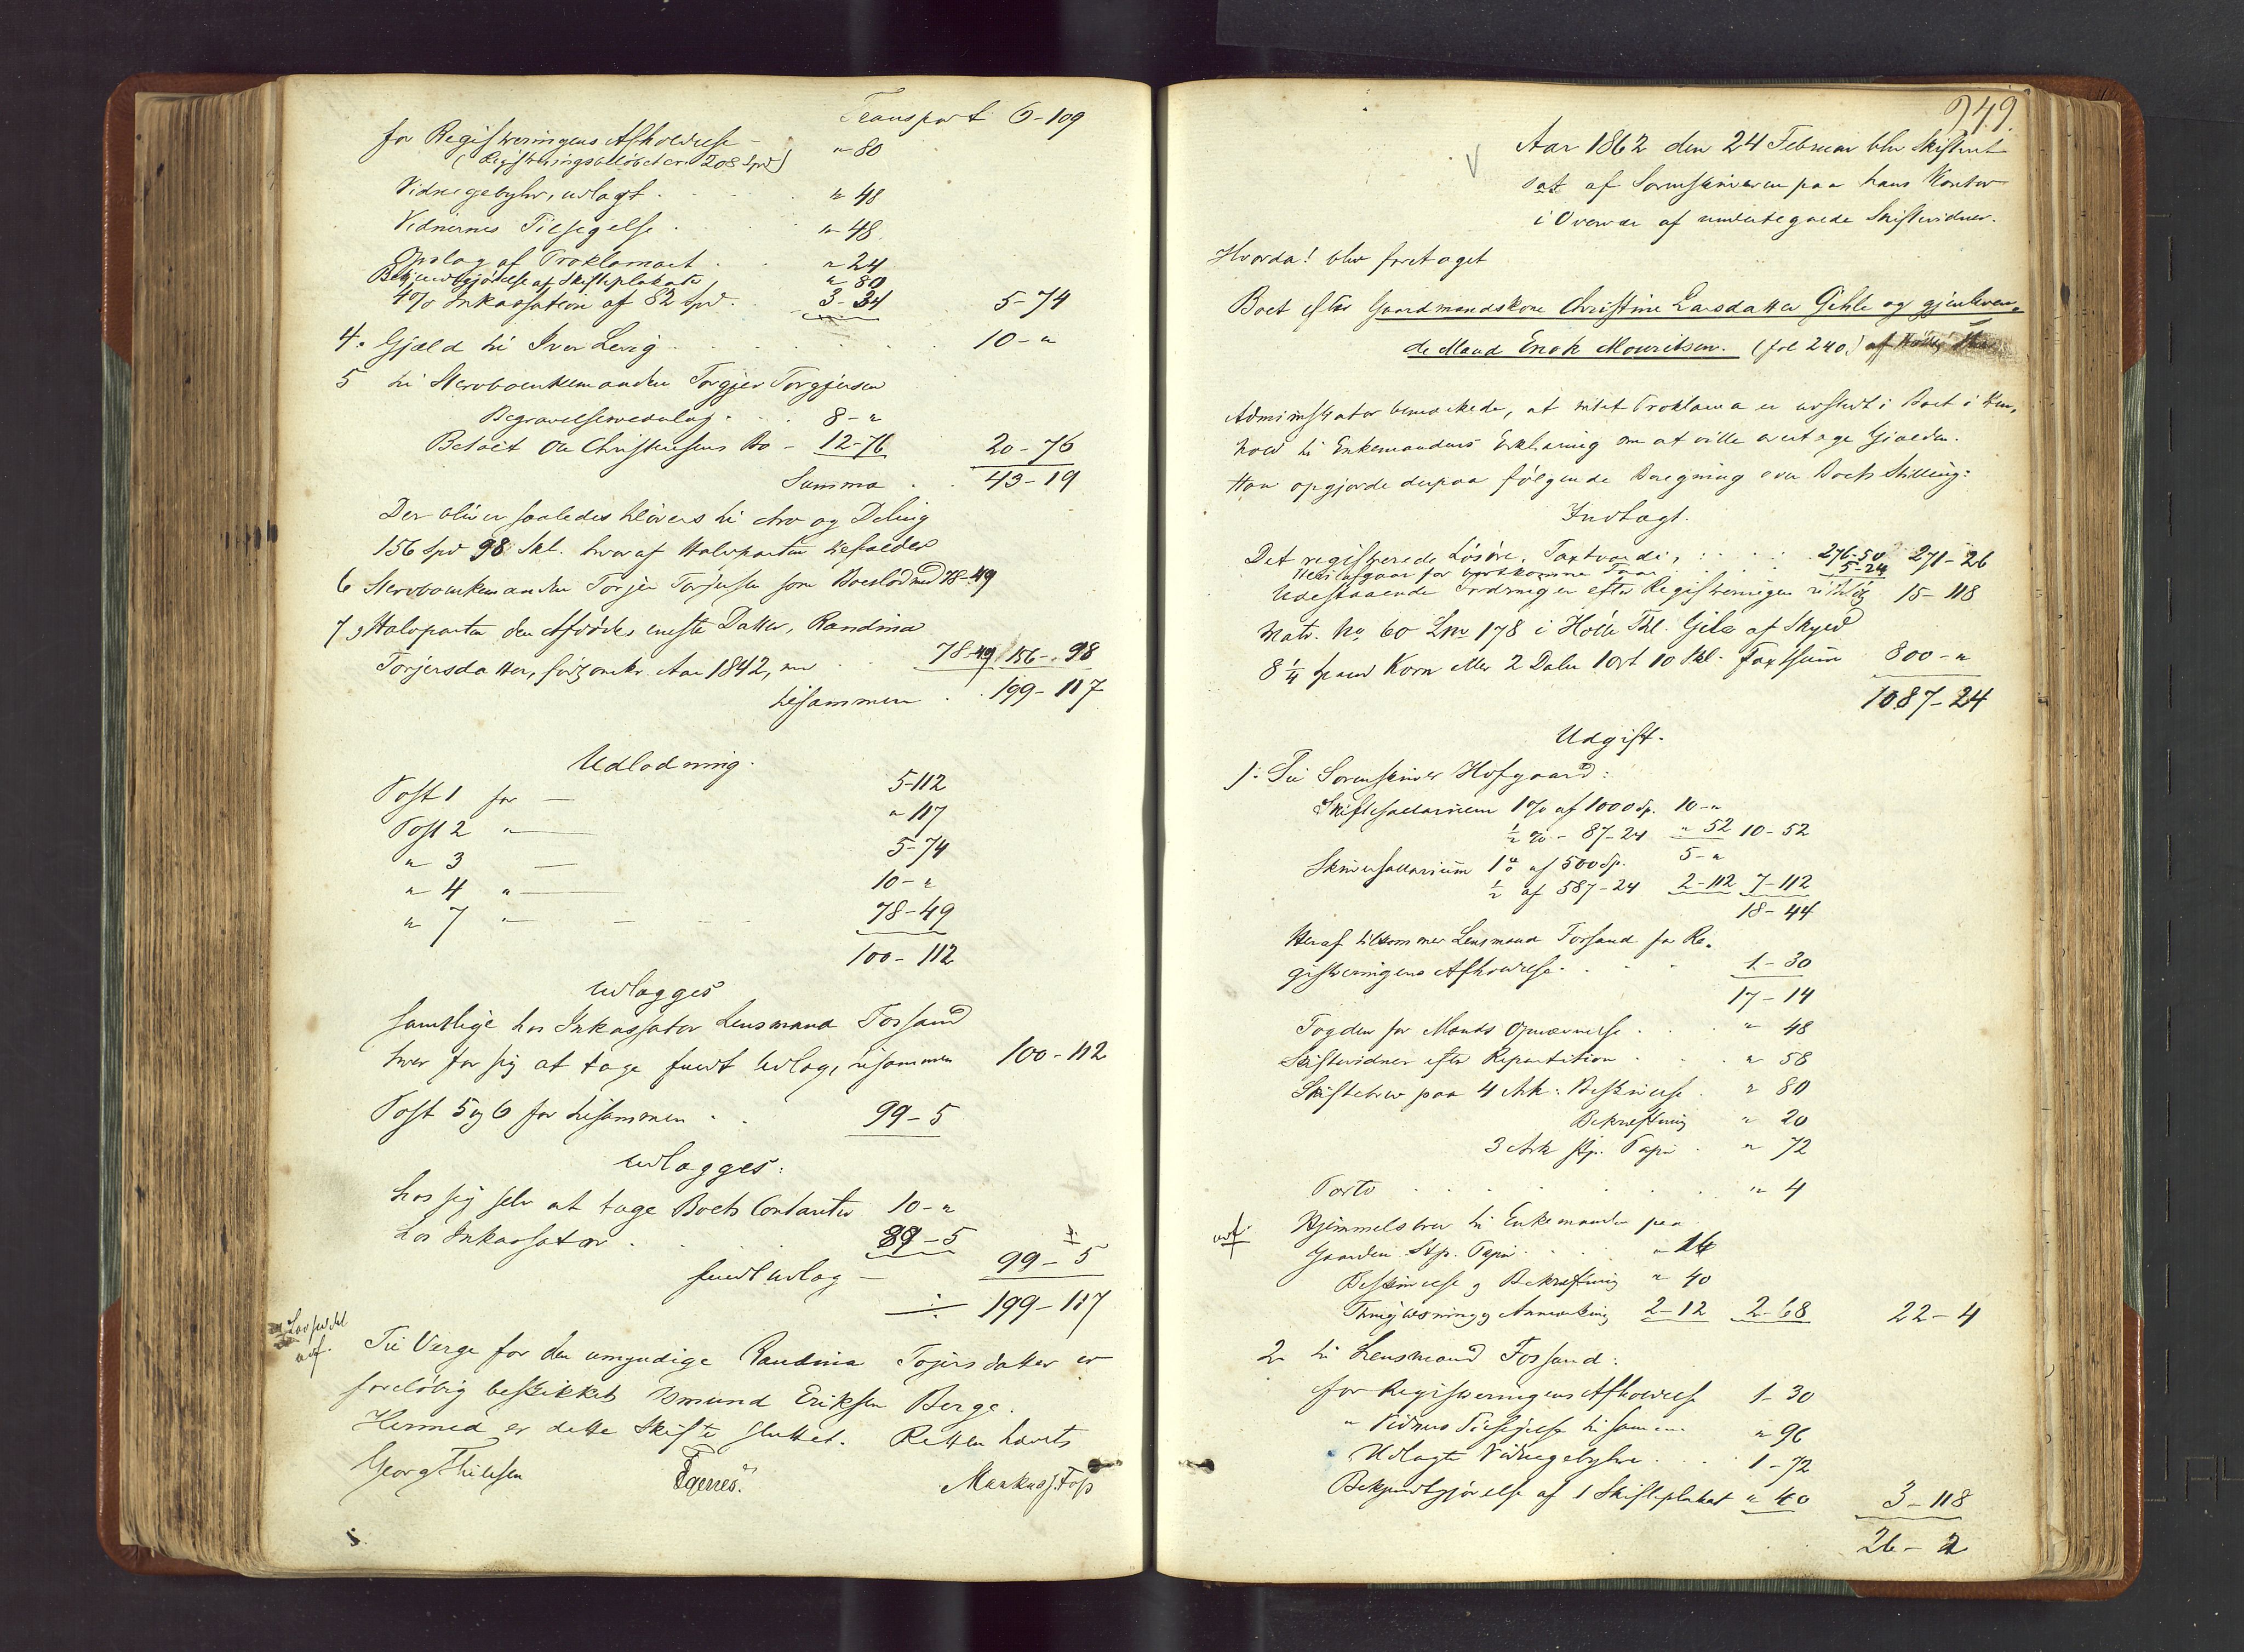 Transport 6-109
for Registreringens Afholdelse - " 80
(Registreringsbeløbet er 208 Spd)
Vidnegebyhr, udlagt . " 48
Vidnernes Tilsigelse . " 48
Opslag af Proklamaet . " 24
Bekjendtgjørelse af Skifteplakater " 80
4% Inkassation af 82 Spd. 3-34 5-74
4. Gjæld til Iver Levig 10-"
5 til Stervboenkemanden Torgjer Torgjersen
Begravelsesvederlag . 8-"
Betalt Christensens Bo - 12-76 20-76
Summa . . 43-19
Der bliver saaledes tilovers til Arv og Deling
156 Spd 98 Skl. hvoraf Halvparten tilfalder
6 Stervboenkemanden Torjer Torjersen som Boeslod med 78-49
7 og Halvparten den Afdødes eneste Datter, Randina
Torjersdatter, født Aar 1842, med 78-49 156-98
tilsammen . . 199-117
Udlodning.
Post 1 for — 5-112
Post 2 " — " 117
" 3 — 5-74
" 4 " — 10-"
" 7 " — 78-49
100-112
udlægges
samtlige hos Inkassator Lensmand Fossand
hver for sig at tage fuldt Udlæg, tilsammen 100-112
Post 5 og 6 for tilsammen . . 99-5
udlægges:
hos sig selv at tage Boets Contanter 10-"
hos Inkassator . . 89-5
fuldt Udlæg — 99-5
÷ 199-117
adf.
Til Verge for den umyndige Randina Tojersdatter er
foreløbig beskikket Osmund Eriksen Berge.
Hermed er dette Skifte sluttet. Retten hævet
Georg Thilesen Egenes. Markus J. Foss
249.
Aar 1862 den 24 Februar blev Skifteret
sat af Sorenskriveren paa hans Kontor
i Overvær af undertegnede Skiftevidner.
Hvorda! blev foretaget
Boet efter Gaardmandskone Christine Larsdatter Gihle og gjenleven-
de Mand Enok Mouritsen. (fol 240.) af
Administrator bemærkede, at intet Proklama er udstedt i Boet i Hen-
hold til Enkemandens Erklæring om at ville overtage Gjælden.
Han opgjorde derpaa følgende Beregning over Boets Stilling:
Indtægt.
Det registrerede Løsøre, Taxtværdi, 276-50 271-26
Herfra afgaar for bortkomne 5-24
Udestaaende Fordringer efter Registreringen 15-118
Matr. No 60 Lno 178 i Hølle Thl. Gile af Skyld
8 1/4 Spand Korn eller 2 Daler 1 Ort 10 Skl. Taxtsum 800-"
1087-24
Udgift.
1. Til Sorenskriver Hofgaard:
Skiftesallarium 1% af 1000 Sp. 10-"
1/2 % - 87-24 " 52 10-52
Skriversallarium 1% af 500 Sp. 5-"
1/2 af 587-24 2-112 7-112
18-44
Heraf tilkommer Lensmand Fossand for Re-
gistreringens Afholdelse . . 1-30
17-14
Fogden for Mænds Opnævnelse . . " 48
Skiftevidner efter Repartition . . " 58
Skiftebrev paa 4 Ark: Beskrivelse . " 80
Bekræftning " 20
3 Ark stp. Papir . " 72
Porto . . . " 4
adf.
Hjemmelsbrev til Enkemanden paa
Gaarden Stp. Papir . . " 24
Beskrivelse og Bekræftning " 40
Thinglæsning og Anmerkning 2-12 2-68 22-4
2 til Lensmand Fossand:
for Registreringens Afholdelse 1-30
" Vidners Tilsigelse tilsammen " 96
" Udlagte Vidnegebyhr . . 1-72
Bekjendtgjørelse af 1 Skifteplakat " 40 3-118
26-2